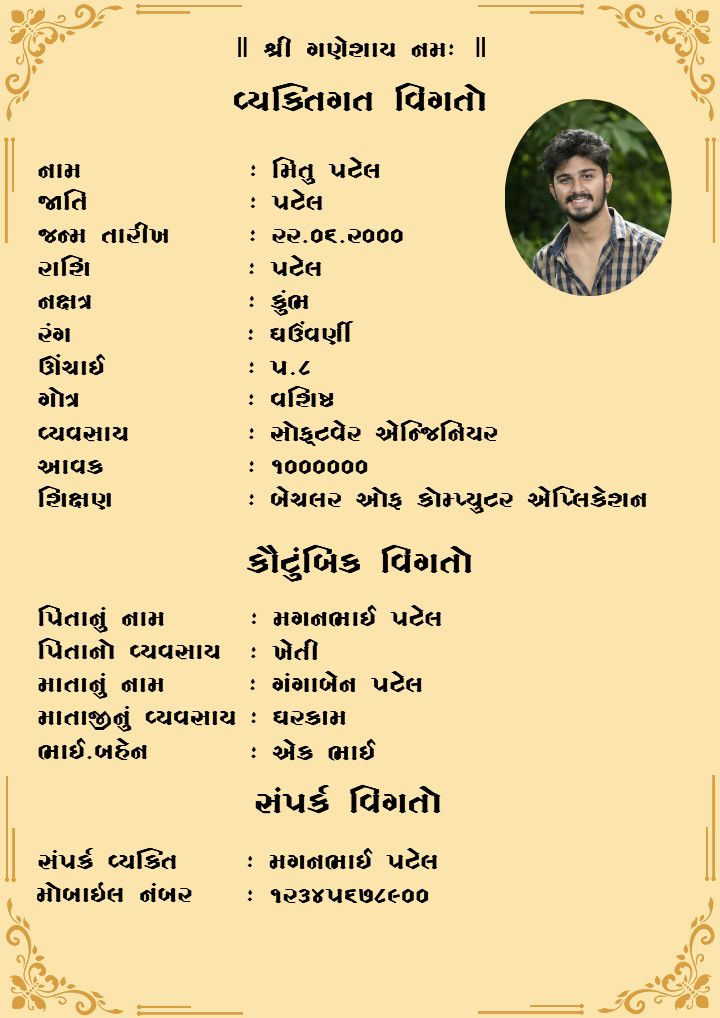 || શ્રી ગણેશાય નમઃ ||
વ્યક્તિગત વિગતો
નામ : મિતુ પટેલ
જાતિ : પટેલ
જન્મ તારીખ : ૨૨.૦૬.૨૦૦૦
રાશિ : પટેલ
નક્ષત્ર : કુંભ
રંગ : ઘઉંવર્ણી
ઊંચાઈ : ૫.૮
ગોત્ર : વશિષ્ઠ
વ્યવસાય : સોફ્ટવેર એન્જિનિયર
આવક : ૧૦૦૦૦૦૦
શિક્ષણ : બેચલર ઓફ કોમ્પ્યુટર એપ્લિકેશન
કૌટુંબિક વિગતો
પિતાનું નામ : મગનભાઈ પટેલ
પિતાનો વ્યવસાય : ખેતી
માતાનું નામ : ગંગાબેન પટેલ
માતાજીનું વ્યવસાય : ઘરકામ
ભાઈ.બહેન : એક ભાઈ
સંપર્ક વિગતો
સંપર્ક વ્યક્તિ : મગનભાઈ પટેલ
મોબાઇલ નંબર : ૧૨૩૪૫૬૭૮૯૦૦